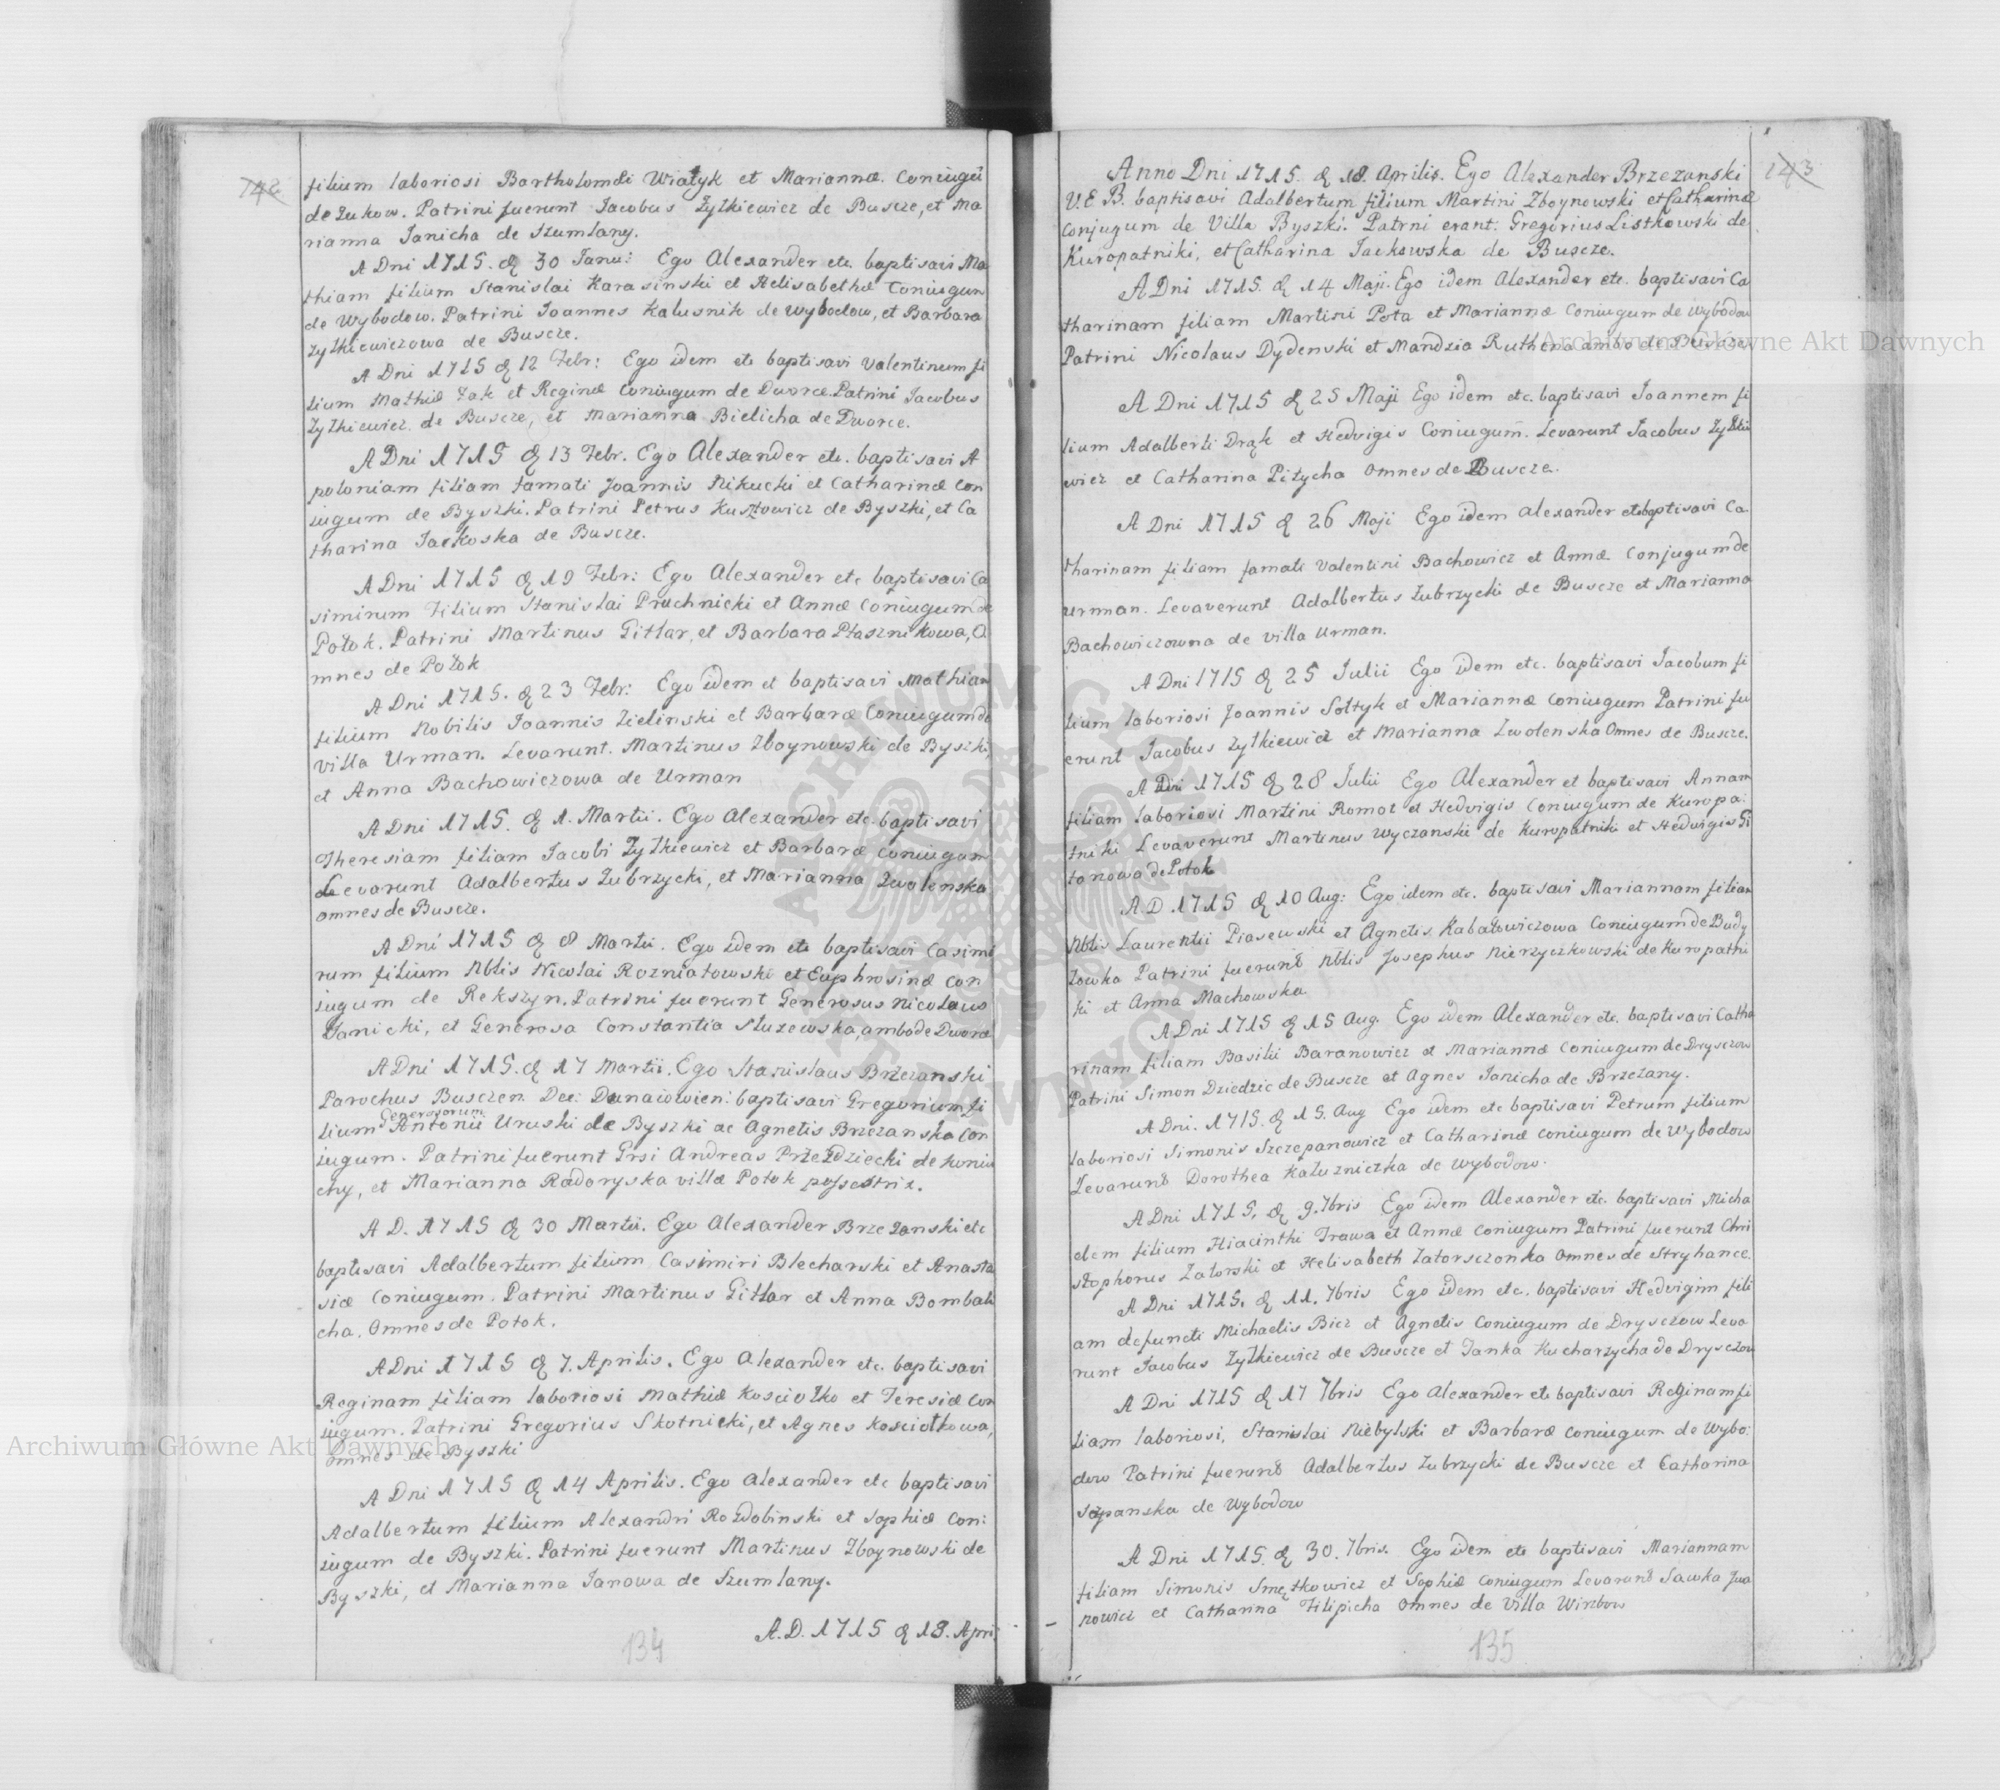 142
filium laboriosi Bartholomæi Wiatyk et Mariannæ Coniugũ
de Łukow. Patrini fuerunt Jacobus Zytkiewicz de Buscze, et Ma
rianna Janicha de Szumlany.
A Dni 1715. d 30 Janu: Ego Alexander etc. baptisavi Ma
thiam filium Stanislai Karasinski et Helisabethæ Coniugum
de Wybodow. Patrini Joannes Kalusnik de Wybodow, et Barbara
Zytkiewiczowa de Buscze.
A Dni 1715 d 12 Febr: Ego idem etc baptisavi Valentinum fi
lium Mathiæ Zak et Reginæ Coniugum de Dworce. Patrini Jacobus
Zytkiewicz de Buscze, et Marianna Bielicha de Dworce.
A Dni 1715 d 13 Febr. Ego Alexander etc. baptisavi A
poloniam filiam famati Joannis Nikucki et Catharinæ Con
iugum de Byszki. Patrini Petrus Kusztowicz de Byszki, et Ca
tharina Jackoska de Buscze.
A Dni 1715 d 19 Febr: Ego Alexander etc baptisavi Ca
simirum Filium Stanislai Pruchnicki et Annæ Coniugum de
Potok. Patrini Martinus Gittar, et Barbara Ptasznikowa, O
mnes de Potok
A Dni 1715. d 23 Febr: Ego idem et baptisavi Mathiam
filium Nobilis Joannis Zielinski et Barbaræ Coniugum de
villa Urman. Levarunt. Martinus Zboynowski de Byszki,
et Anna Bachowiczowa de Urman
A Dni 1715. d 1. Martii. Ego Alexander etc. baptisavi
Theresiam filiam Jacobi Zytkiewicz et Barbaræ Coniugum
Levarunt Adalbertus Zubrzycki, et Marianna Zwolenska
omnes de Buscze.
A Dni 1715 d 8 Martii. Ego idem etc baptisavi Casimi
rum filium Nblis Nicolai Rozniatowski et Euphrosinæ Con
iugum de Rekszyn. Patrini fuerunt Generosus Nicolaus
Janicki, et Generosa Constantia Słuzewska, ambo de Dworce
A Dni 1715. d 17 Martii. Ego Stanislaus Brzezanski
Parochus Busczen. Dec: Dunaiowien: baptisavi Gregorium fi
Generosorum
lium Antonii Uruski de Byszki ac Agnetis Brzezanska Con
iugum. Patrini fuerunt Grsi Andreas Przezdziecki de Koniu
chy, et Marianna Radoryska villæ Potok possestrix.
A D. 1715 d 30 Martii. Ego Alexander Brzezanski etc
baptisavi Adalbertum filium Casimiri Blecharski et Anasta
siæ Coniugum. Patrini Martinus Gittar et Anna Bombali
cha. Omnes de Potok.
A Dni 1715 d 7. Aprilis. Ego Alexander etc. baptisavi
Reginam filiam laboriosi Mathiæ Kosciołko et Teresiæ Con
iugum. Patrini Gregorius Skotnicki, et Agnes Kosciołkowa,
omnes de Byszki
A Dni 1715 d 14 Aprilis. Ego Alexander etc baptisavi
Adalbertum filium Alexandri Rozdobinski et Sophiæ Con:
iugum de Byszki. Patrini fuerunt Martinus Zboynowski de
Byszki, et Marianna Janowa de Szumlany.
A.D. 1715 d 18. Apri
134
143
Anno Dni 1715. d 18. Aprilis. Ego Alexander Brzezanski
V.E B. baptisavi Adalbertum filium Martini Zboynowski et Catharinæ
Conjugum de Villa Byszki. Patrni erant: Gregorius Listkowski de
Kuropatniki, et Catharina Jackowska de Buscze.
A Dni 1715. d 14 Maji. Ego idem Alexander etc. baptisavi Ca
tharinam filiam Martini Pota et Mariannæ Coniugum de Wybodow
Patrini Nicolaus Dydenski et Mandzia Ruthena ambo de Buscze
A Dni 1715 d 25 Maji Ego idem etc. baptisavi Joannem fi
lium Adalberti Drąk et Hedvigis Coniugum. Levarunt Jacobus Zytkie
wicz et Catharina Pitycha Omnes de Buscze.
A Dni 1715 d 26 Maji Ego idem Alexander etc baptisavi Ca
tharinam filiam famati Valentini Bachowicz et Annæ Conjugum de
Urman. Levaverunt Adalbertus Zubrzycki de Buscze et Marianna
Bachowiczowna de villa Urman.
A Dni 1715 d 25 Julii Ego idem etc. baptisavi Jacobum fi
lium laboriosi Joannis Soltyk et Mariannæ Coniugum Patrini fu
erunt Jacobus Zytkiewicz et Marianna Zwolenska Omnes de Buscze.
A Dni 1715 d 28 Julii Ego Alexander et baptisavi Annam
filiam laboriosi Martini Romot et Hedvigis Coniugum de Kuropa:
tniki Levaverunt Martinus Wyczanski de Kuropatniki et Hedvigis Gi
tonowa de Potok
A D. 1715 d 10 Aug: Ego idem etc. baptisavi Mariannam filiam
Nblis Laurentii Piasewski et Agnetis Kabatowiczowa Coniugum de Budy
łowka Patrini fuerunt Nblis Josephus Nierzyczkowski de Kuropatni
ki et Anna Machowska
A Dni 1715 d 15 Aug. Ego idem Alexander etc. baptisavi Catha
rinam filiam Basilii Baranowicz et Mariannæ Coniugum de Dryszczow
Patrini Simon Dziedzic de Buscze et Agnes Janicha de Brzezany.
A Dni. 1715. d 15. Aug Ego idem etc baptisavi Petrum filium
laboriosi Simonis Szczepanowicz et Catharinæ Coniugum de Wybodow
Levarunt Dorothea Kałuzniczka de Wybodow.
A Dni 1715. d 9. 7bris Ego idem Alexander etc. baptisavi Micha
elem filium Hiacinthi Trawa et Annæ Coniugum Patrini fuerunt Chri
stophorus Zatorski et Helisabeth Zatorsczonka Omnes de Stryhance.
A Dni 1715. d 11. 7bris Ego idem etc. baptisavi Hedvigim fili
am defuncti Michaelis Bicz et Agnetis Coniugum de Dryszczow Leva
runt Jacobus Zytkiewicz de Buscze et Janka Kucharzycha de Dryszczow
A Dni 1715 d 17 7bris Ego Alexander etc baptisavi Reginam fi
liam laboriosi, Stanislai Niebylski et Barbaræ Coniugum de Wybo:
dow Patrini fuerunt Adalbertus Zubrzycki de Buscze et Catharina
de Wybodow
A Dni 1715. d 30. 7bris. Ego idem etc baptisavi Mariannam
filiam Simonis Smętkowicz et Sophiæ Coniugum Levarunt Sawka Jwa
nowicz et Catharina Filipicha Omnes de Villa Wirzbow
135
Archiwum Główne Akt Dawnych
Archiwum Główne Akt Dawnych